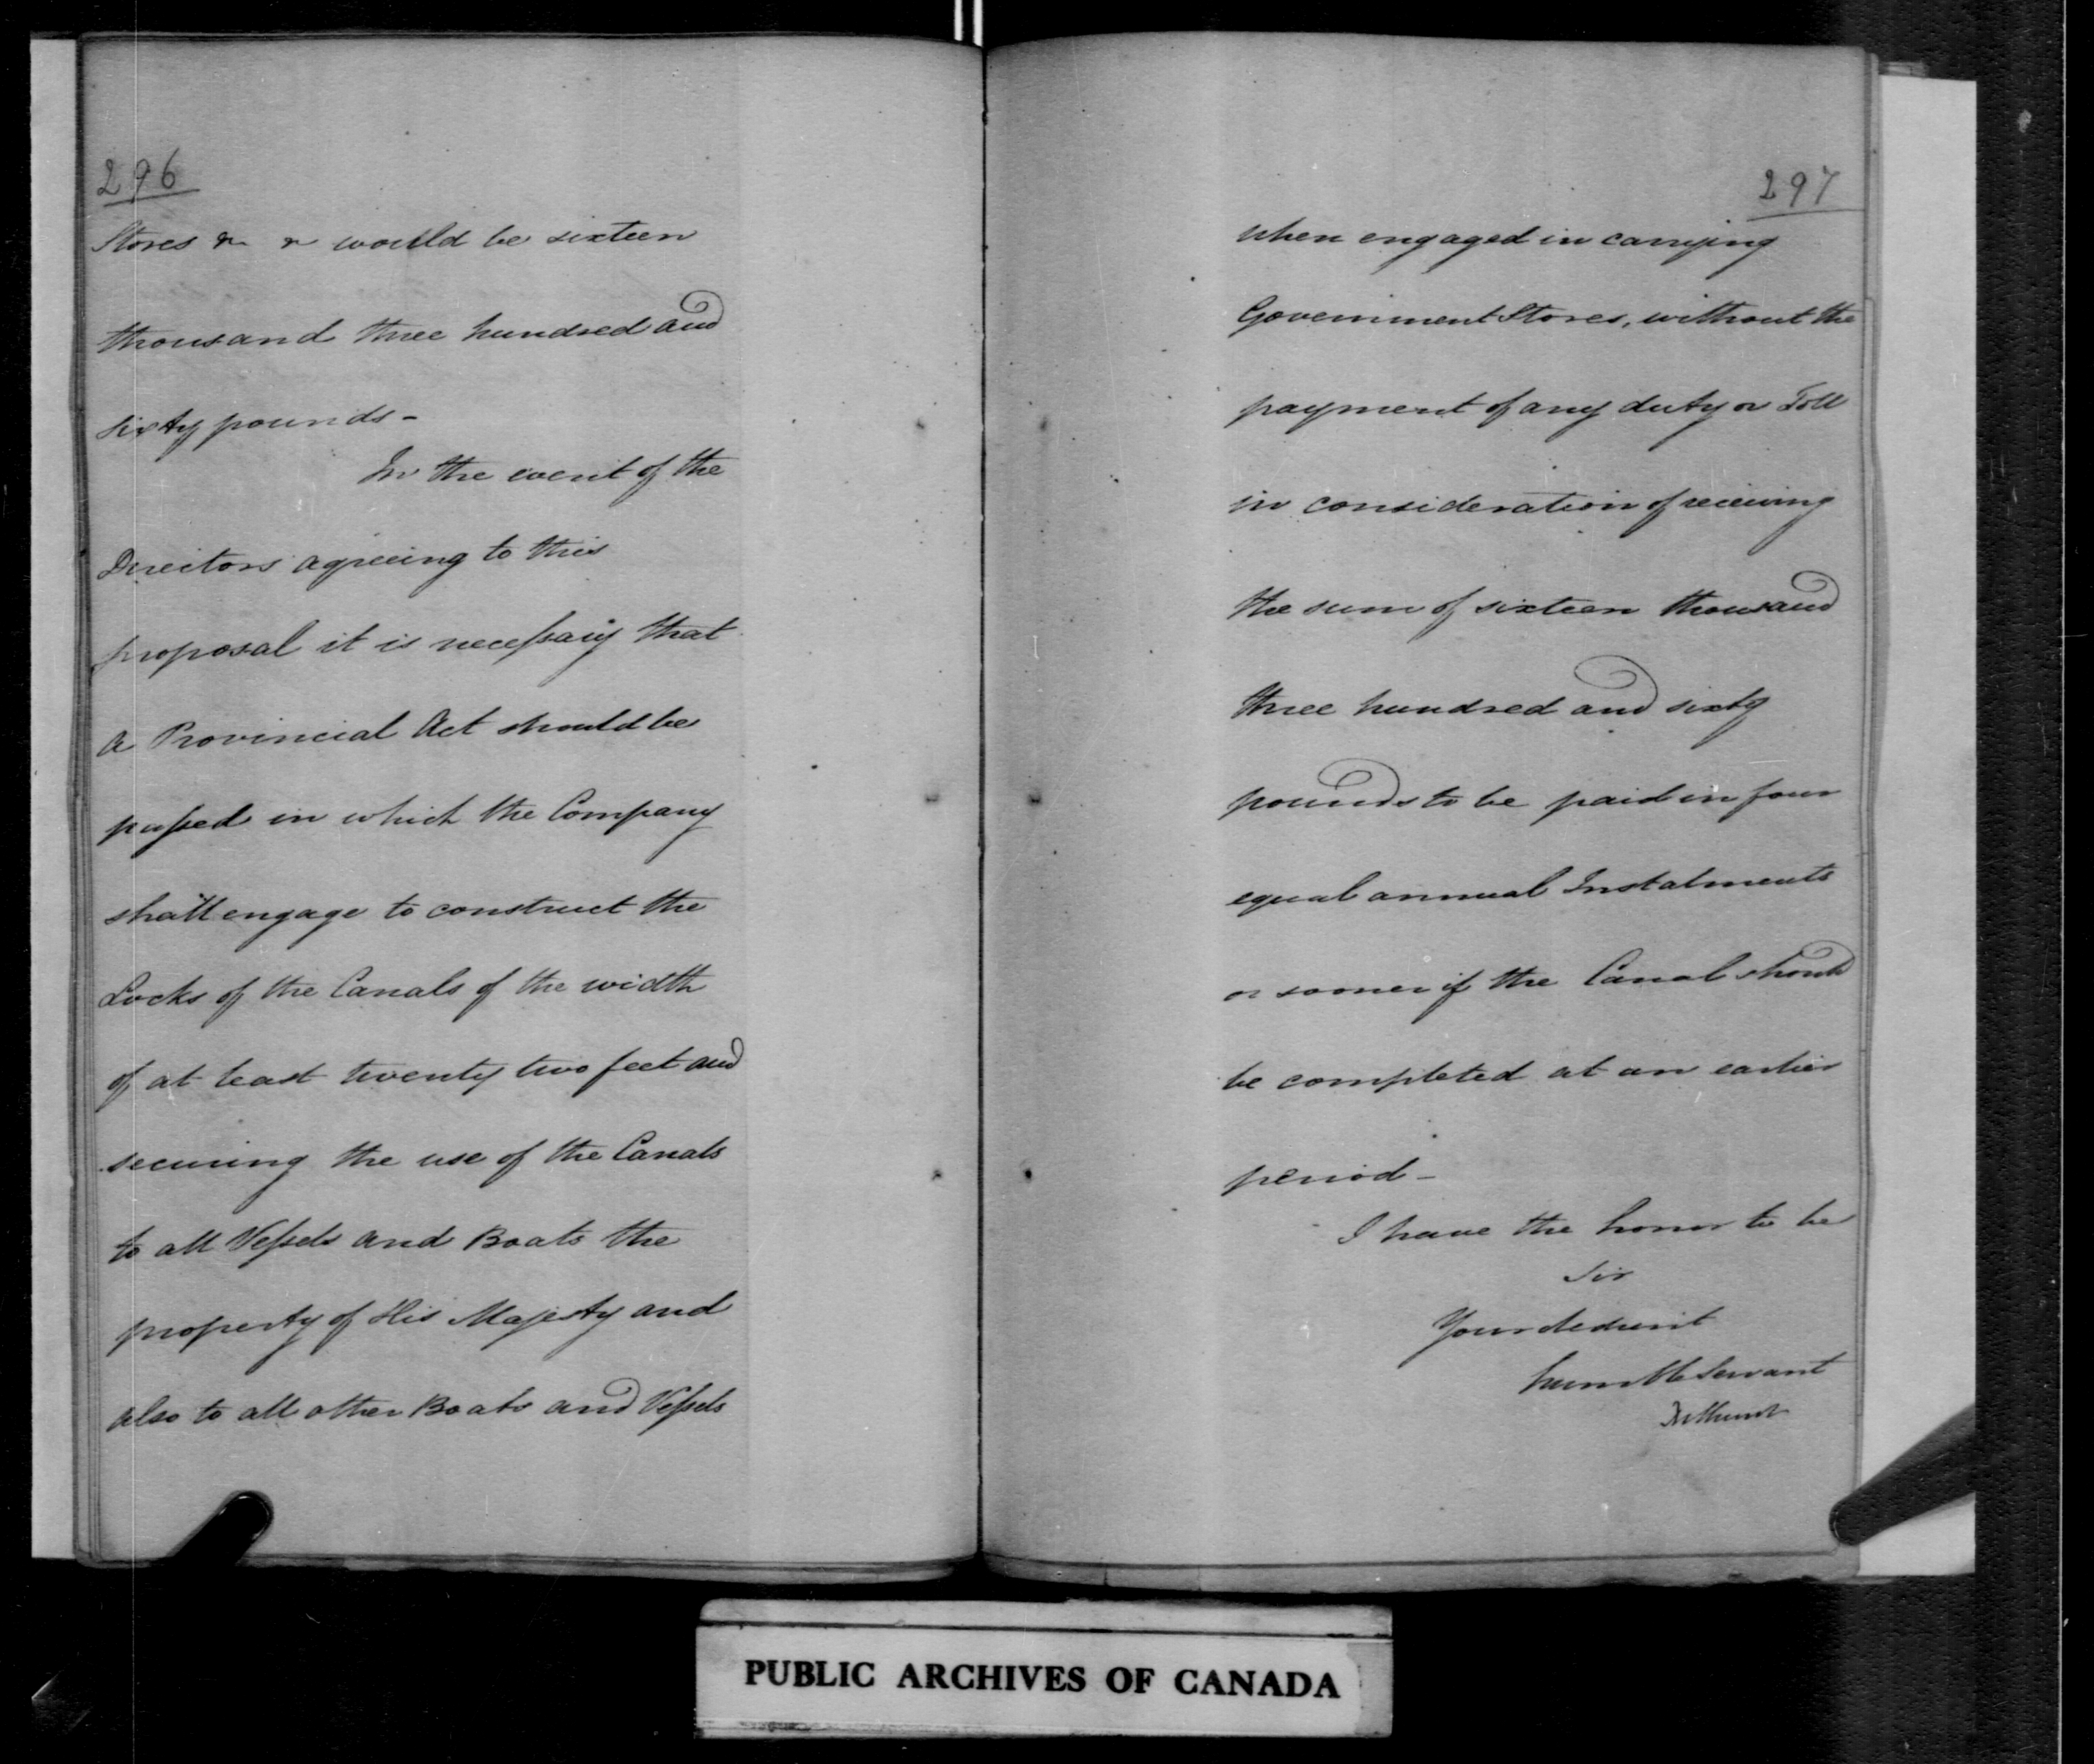 296
Stores &c &c would be sixteen
thousand three hundred and
sixty pounds -
In the event of the
Directors agreeing to this
proposal it is necessary that
a Provincial Act should be
passed in which the Company
shall engage to construct the
Locks of the Canals of the width
of at least twenty two feet and
securing the use of the Canals
to all Vessels and Boats the
property of His Majesty and
also to all other Boats and Vessels
297
when engaged in carrying
Government Stores, without the
payment of any duty or Toll
in consideration of receiving
the sum of sixteen thousand
three hundred and sixty
pounds to be paid in four
equal annual Instalments
or sooner if the Canal should
be completed at an earlier
period -
I have the honor to be
Sir
Your obedient
humble Servant
Bathurst
PUBLIC ARCHIVES OF CANADA